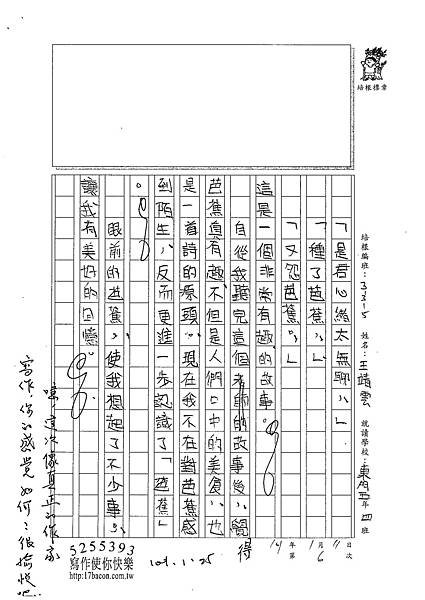 培根標章
培根編班：3315 姓名：王靖雲 就讀學校：東門五年四班
11日 1月 14年 第6次
「是君心緒太無聊，」
「種了芭蕉，」
「又怨芭蕉。」
這是一個非常有趣的故事。
自從我聽完這個老師的故事後，覺得
芭蕉真有趣不但是人們口中的美食，也
是一首詩的源頭。現在我不在對芭蕉感
到陌生，反而更進一步認識了「芭蕉」
。
眼前的芭蕉，使我想起了不少事。
讓我有美好的回憶。
嗯，這次像真正的作家
寫作，你的感覺如何？很愉悅吧
5255393
寫作使你快樂
http://17bacon.com.tw
101.1.25